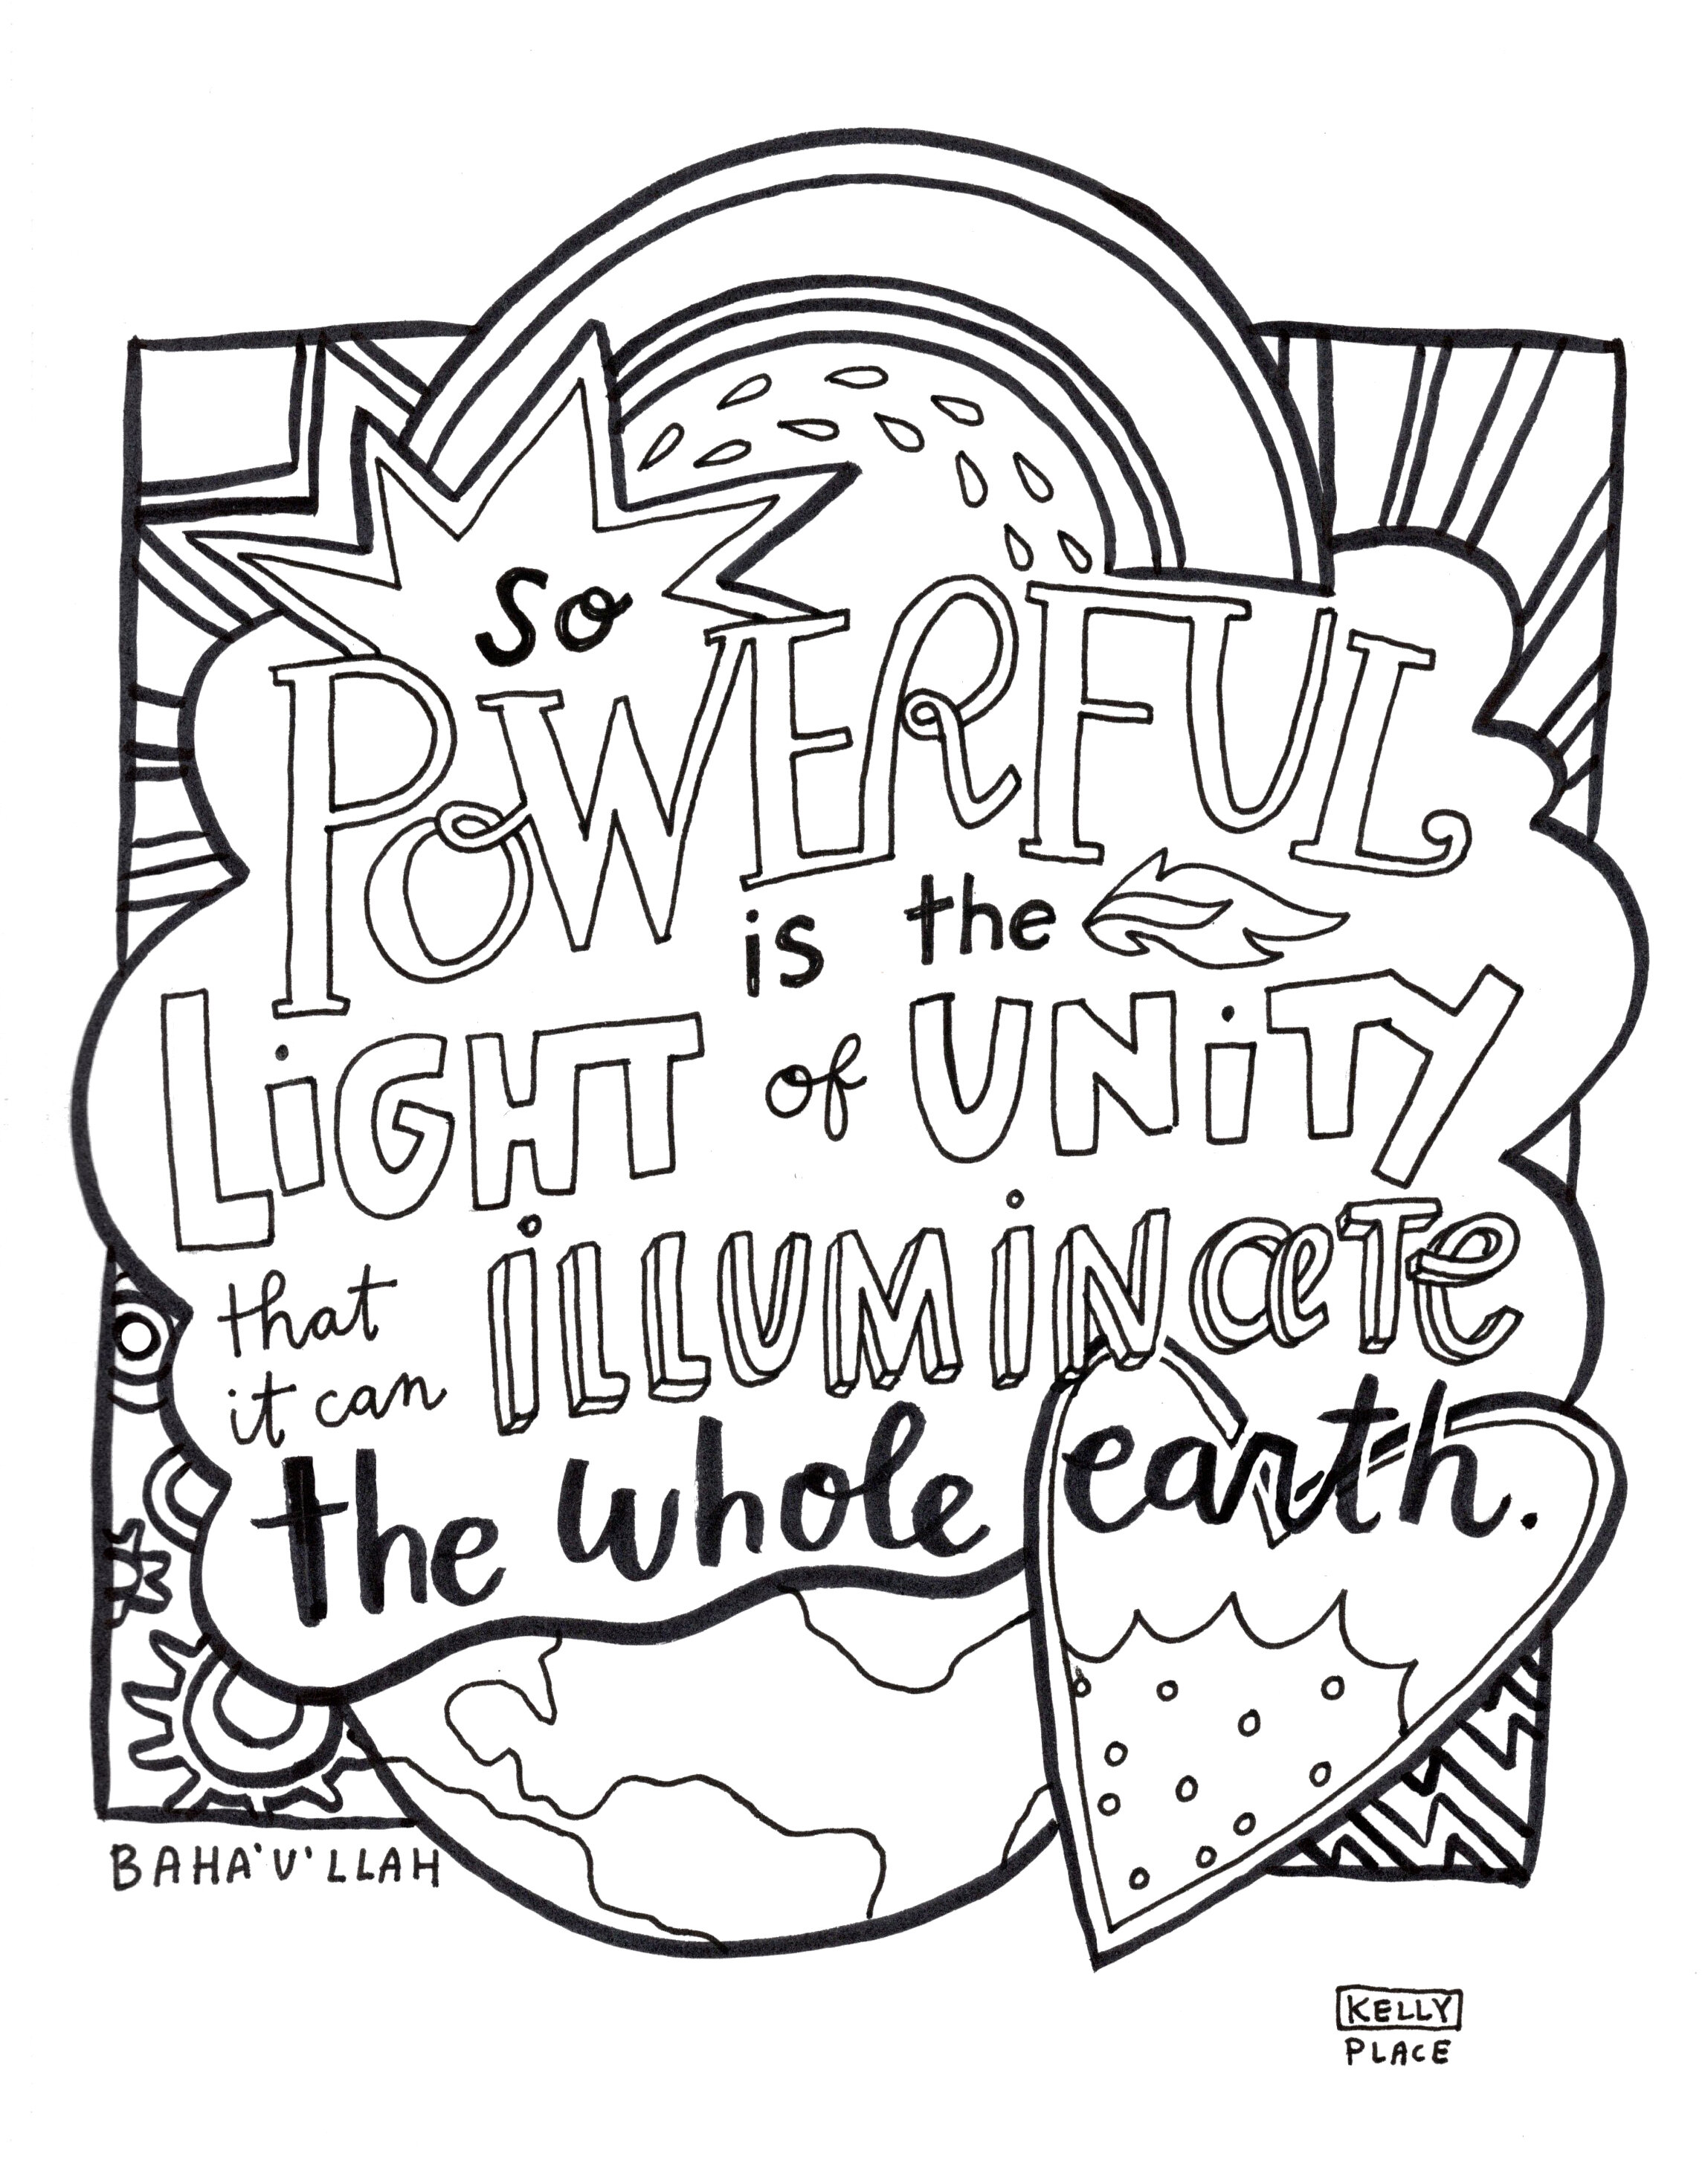 so
POWERFUL
is the
LiGHT of UNiTY
that iLLUMiNaTe
it can
the whole earth.
BAHA'U'LLAH
KELLY
PLACE